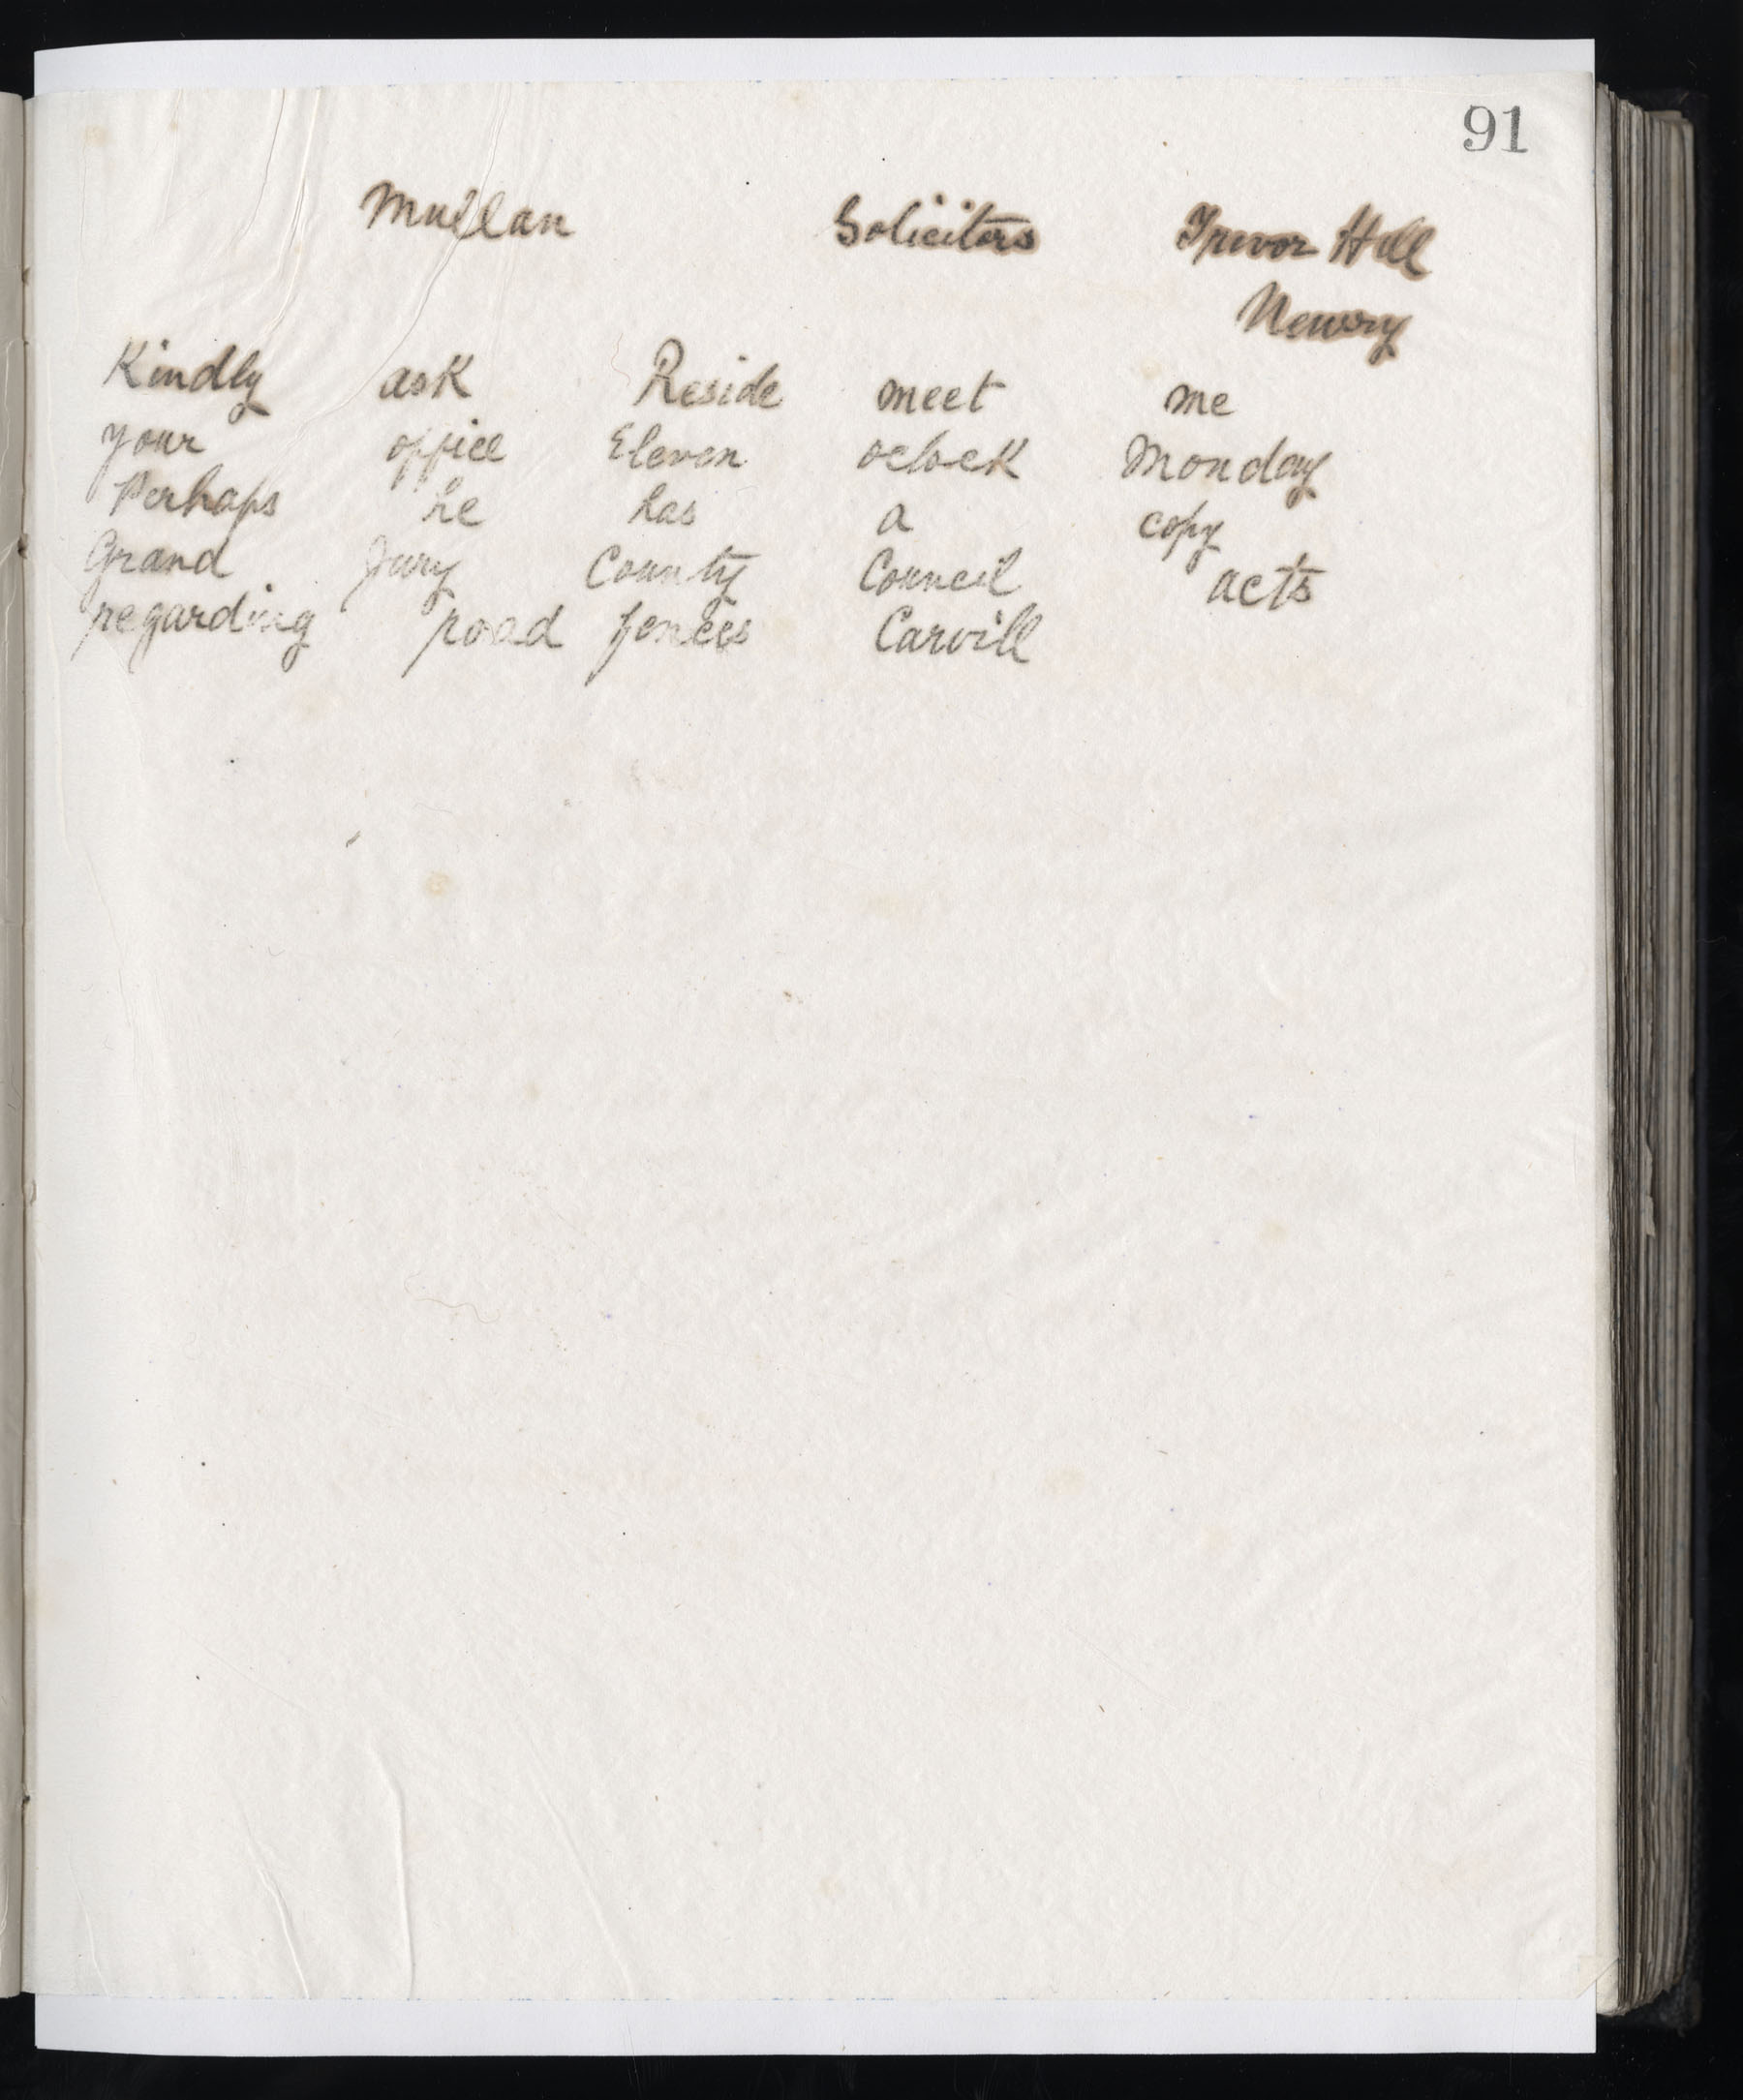 91
Mullan Solicitors Trevor Hill
Newry
Kindly ask Reside meet me
your office Eleven oclock Monday
Perhaps he has a copy
Grand Jury County Council acts
regarding road fences Carvill